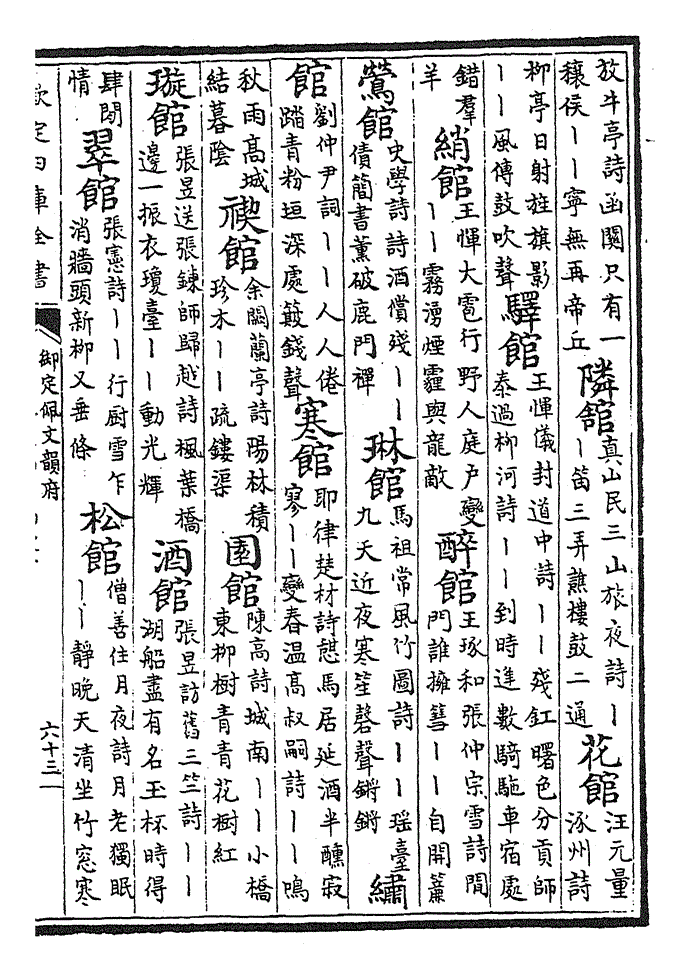 放牛亭詩函關只有一
穰侯丨丨寧無再帝丘
隣舘
真山民三山旅夜詩丨
丨笛三弄譙樓鼓二通
花館
汪元量
涿州詩
柳亭日射旌旗影
丨丨風傳鼓吹聲
驛館
王惲儀封道中詩丨丨殘釭曙色分貢師
泰過柳河詩丨丨到時進數騎駞車宿處
錯羣
羊
綃館
王惲大雹行野人庭户變
丨丨霧湧煙霾與龍敵
醉館
王琢和張仲宗雪詩閒
門誰擁篲丨丨自開簾
鶯館
史學詩詩酒償殘丨丨
債簡書薰破鹿門禪
琳館
馬祖常風竹圖詩丨丨瑶臺
九天近夜寒笙磬聲鏘鏘
繡
館
劉仲尹詞丨丨人人倦
踏青粉垣深處簸錢聲
寒館
耶律楚材詩憇馬居延酒半醺寂
寥丨丨變春温高叔嗣詩丨丨鳴
秋雨高城
結暮陰
禊館
余闕蘭亭詩陽林積
珍木丨丨疏鏤渠
園館
陳高詩城南丨丨小橋
東柳樹青青花樹紅
璇館
張昱送張鍊師歸越詩楓葉橋
邊一振衣瓊臺丨丨動光輝
酒館
張昱訪舊三竺詩丨丨
湖船盡有名玉杯時得
肆閒
情
翠館
張憲詩丨丨行厨雪乍
消牆頭新柳又垂條
松館
僧善住月夜詩月老獨眠
丨丨靜晚天清坐竹窓寒
欽定四庫全書
御定佩文韻府
六十三